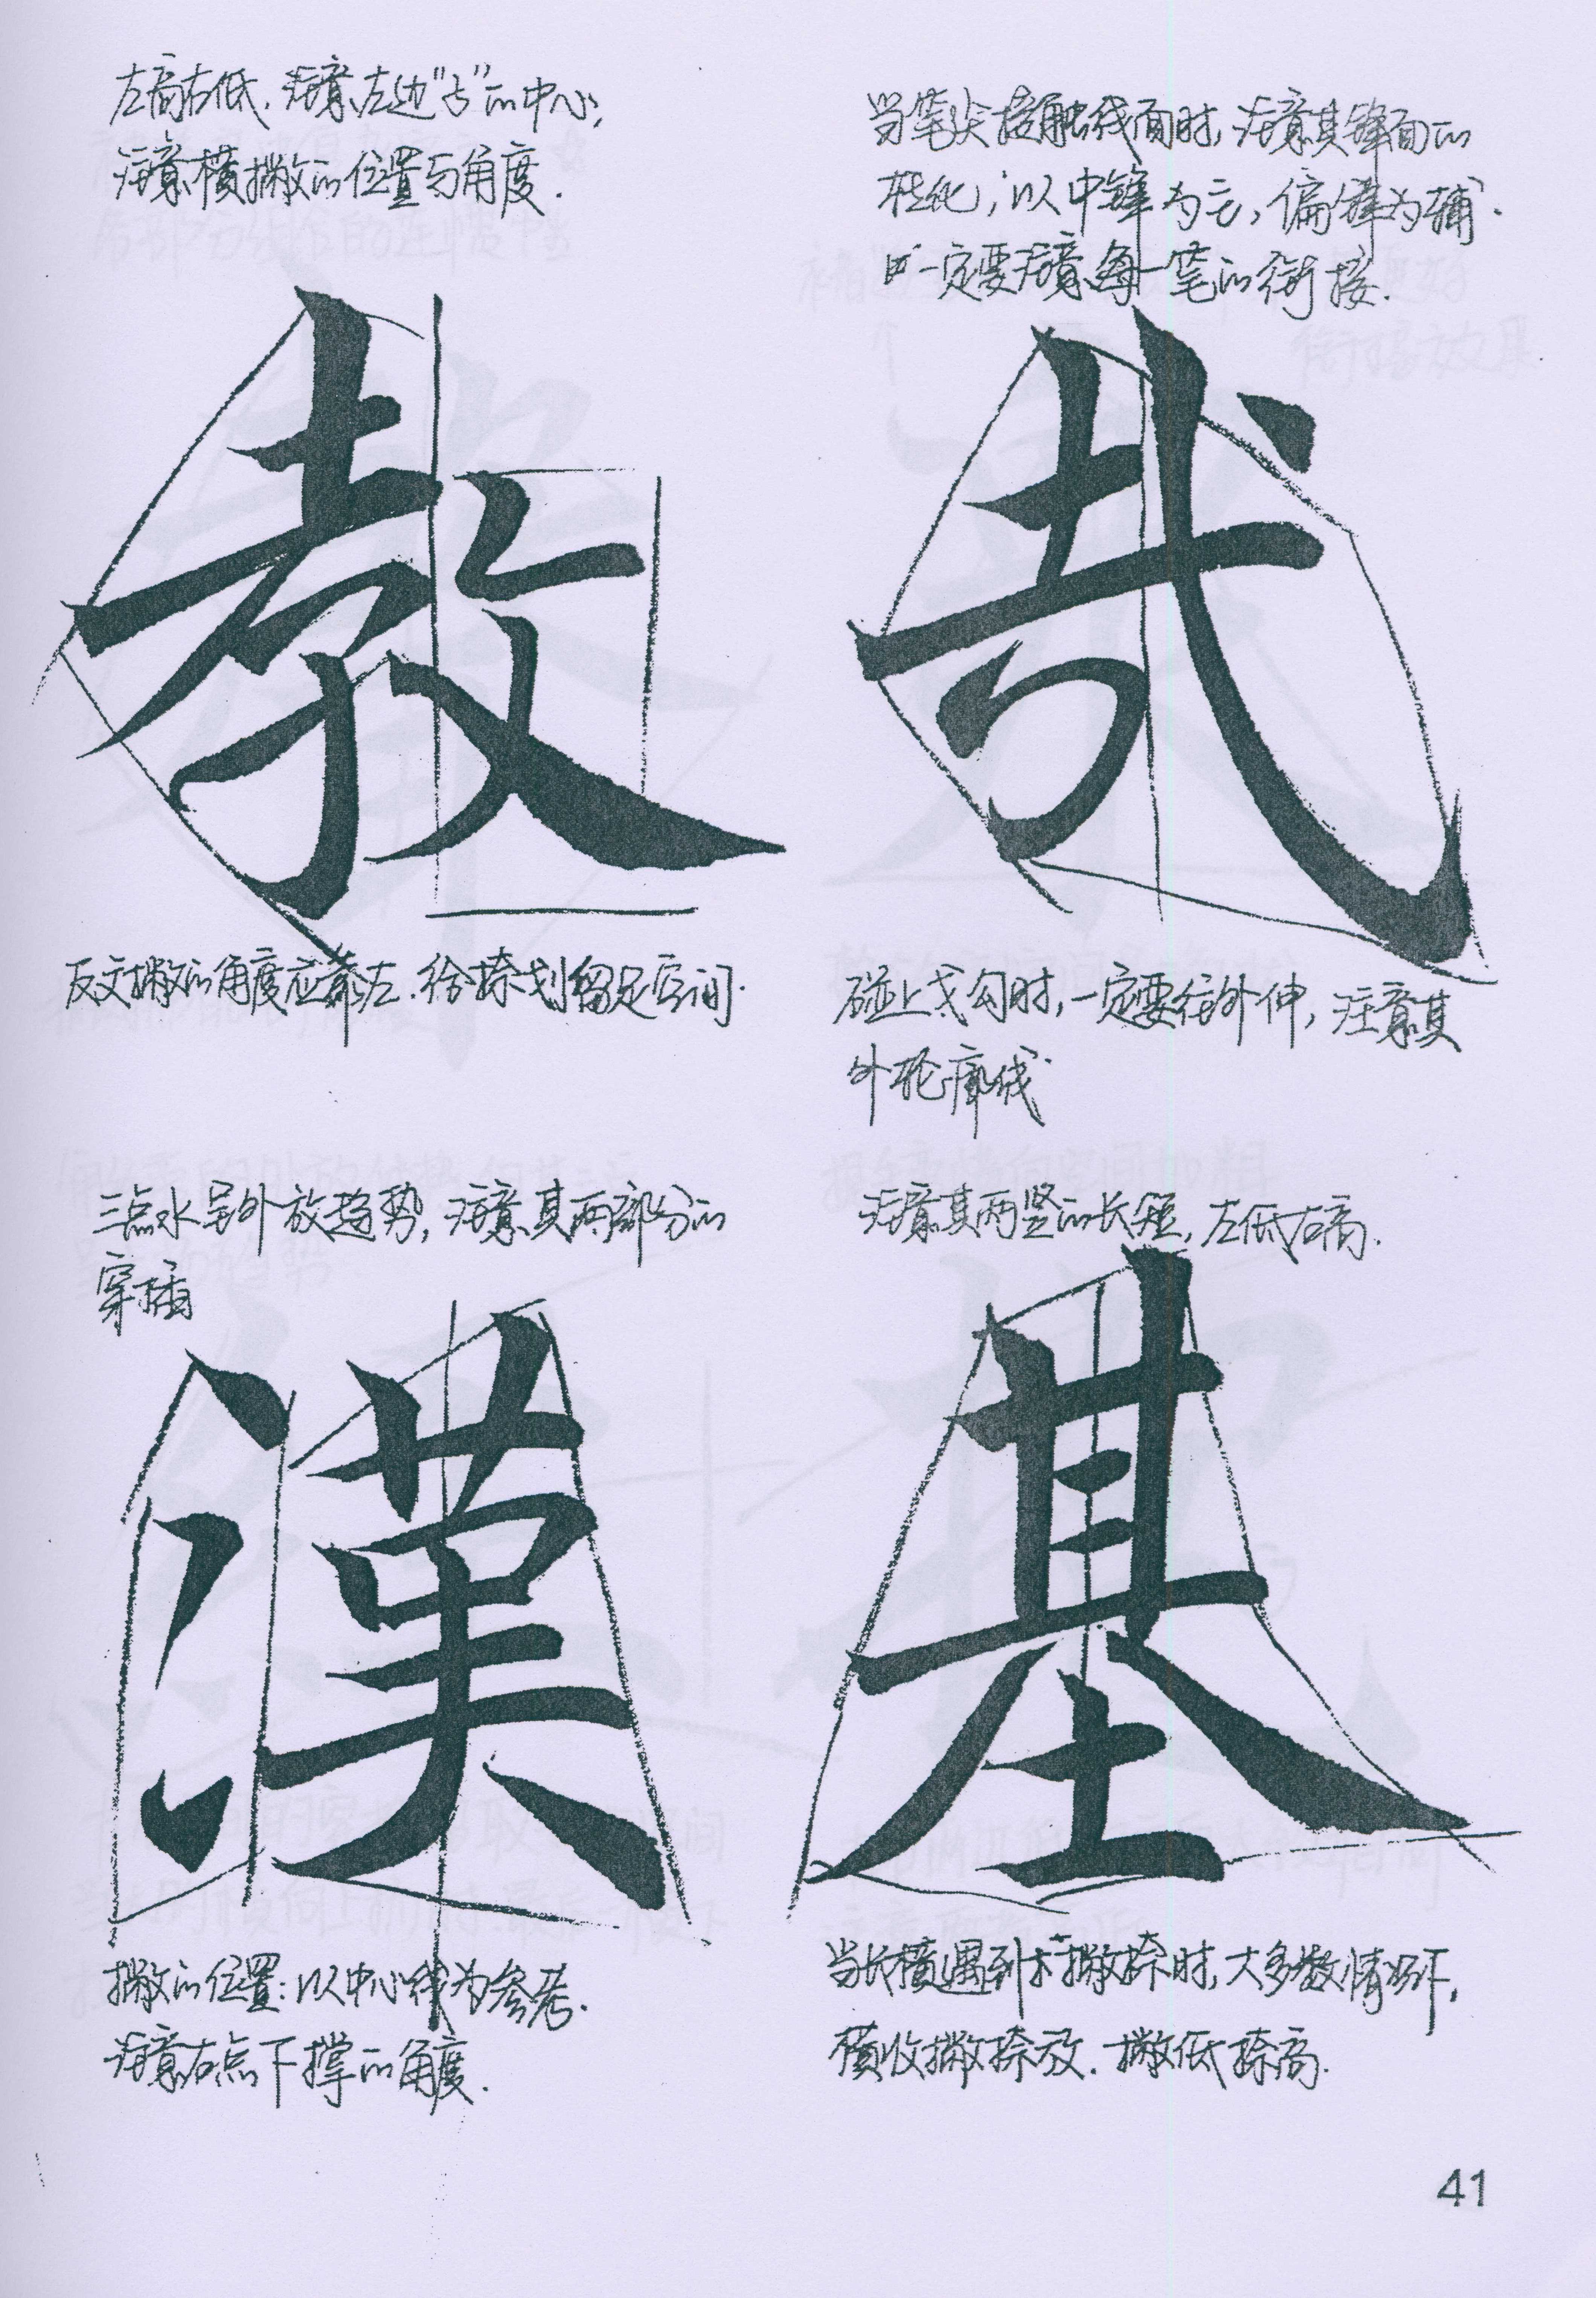 左高右低，注意左边"子"的中心，
注意横撇的位置与角度．
教
反文撇的角度应靠左．给捺划留足空间．
当笔尖接触线面时，注意其锋面的
变化，以中锋为主，偏锋为辅．
一定要注意每一笔的衔接．
哉
碰上戈勾时，一定要往外伸，注意其
外轮廓线
三点水呈外放趋势，注意其两部分的
穿插
漢
撇的位置：以中心线为参考．
注意右点下撑的角度．
注意其两竖的长短，左低右高．
基
当长横遇到撇捺时，大多数情况下，
横收撇捺放．撇低捺高．
41